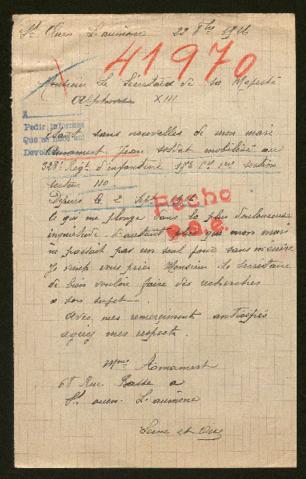 St Ouen L'aumone 22 8bre 1916
41970
Monsieur le Secrétaire de sa Majesté
Alphonse XIII
A
Pedir informes
Que se
Devol
Etant sans nouvelles de mon mari
Armament Jean soldat mobilisé au
328e Regt d'infanterie 17e Cie 1ere section
secteur 110
Depuis le 2
Fecho
ce qui me plonge dans la plus douloureuse
inquiétude d'autant plus que mon mari
ne passait pas un seul jour sans m'écrire
Je viens vous prier Monsieur le Secrétaire
de bien vouloir faire des recherches
a son sujet
Avec mes remerciements anticipés
agréez mes respects.
Mme Armament
68 Rue Basse a
St ouen L'aumone
Seine et Oise